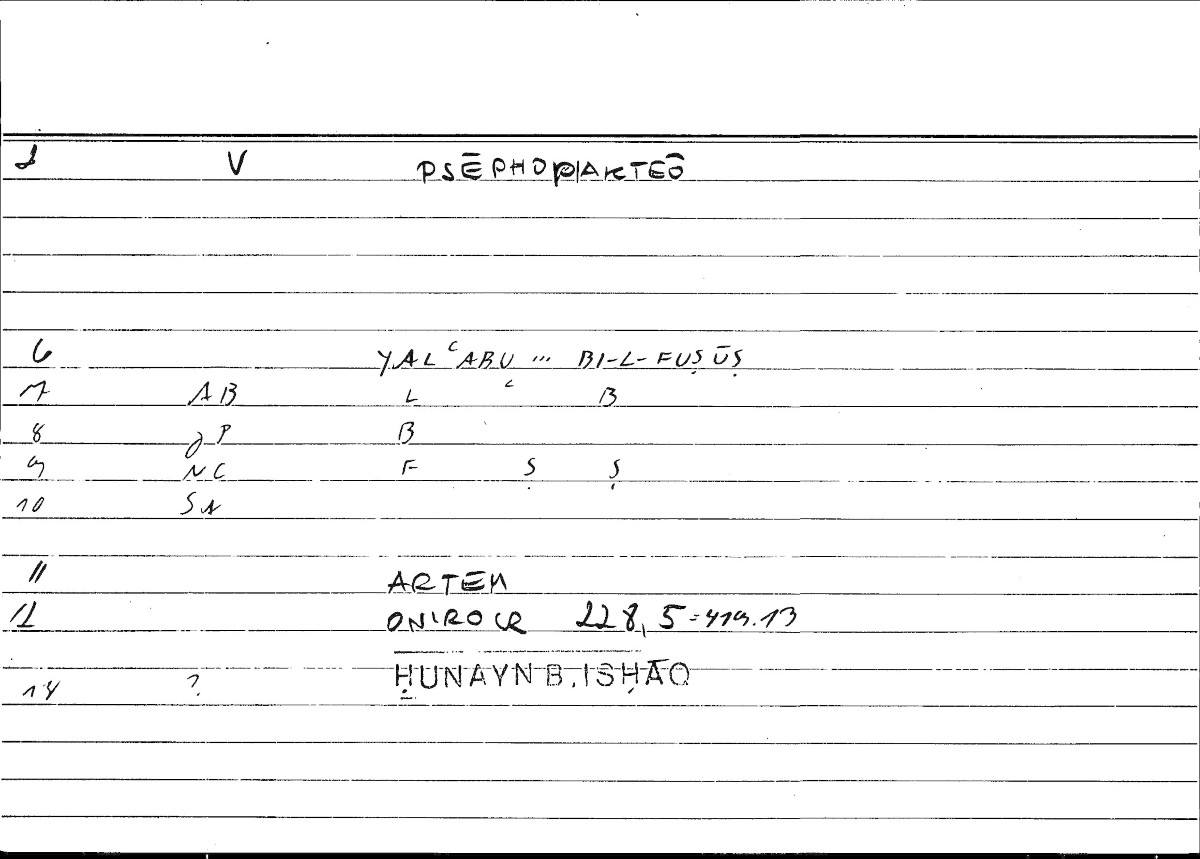 1 V PSĒPHOPAKTEŌ
6 YALʿABU ... BI-L-FUṢŪṢ
7 AB L ʿ B
8 gP B
9 NC F Ṣ Ṣ
10 SN
11 ARTEM
12 ONIROCR 228,5=419.13
14 ? ḤUNAYN B. ISḤĀQ